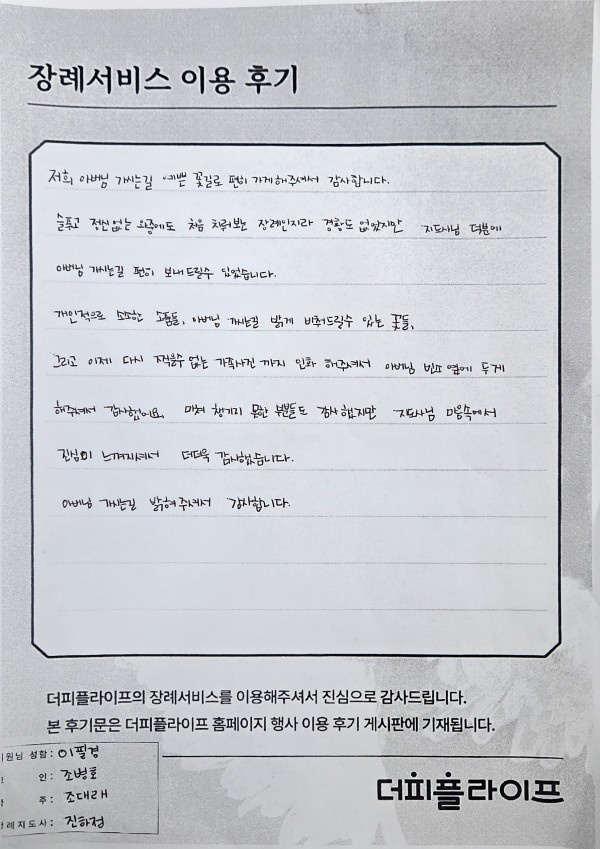 장례서비스 이용 후기
저희 아버님 가시는길 예쁜 꽃길로 편히 가게해주셔서 감사합니다.
슬푸고 정신없는 와중에도 처음 치뤄보는 장례인지라 경황도 없었지만 지도사님 덕분에
아버님 가시는길 편히 보내드릴수 있었습니다.
개인적으로 소소한 소품들, 아버님 가시는길 밝게 비춰드릴수 있는 꽃들,
그리고 이제 다시 찍을수 없는 가족사진 까지 인화 해주셔서 아버님 옆에 두게
해주셔서 감사했어요. 미쳐 챙기지 못한 부분들도 감사했지만 지도사님 마음속에서
진심이 느껴지셔서 더더욱 감사했습니다.
아버님 가시는길 밝혀주셔서 감사합니다.
더피플라이프의 장례서비스를 이용해주셔서 진심으로 감사드립니다.
본 후기문은 더피플라이프 홈페이지 행사 이용 후기 게시판에 기재됩니다.
원님 성함: 이필경
인: 조병호
주: 조대래
례지도사: 진하정
더피플라이프